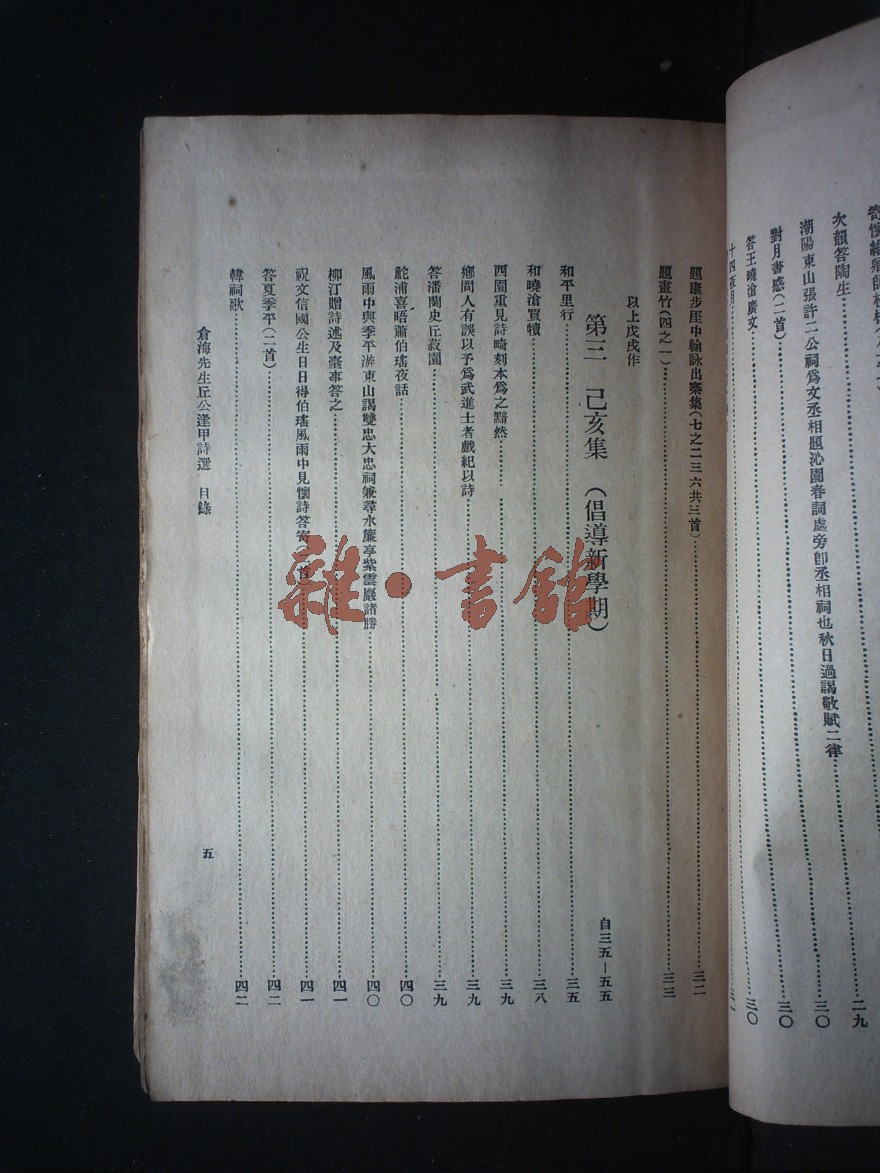 次韻答陶生……二九
潮陽東山張許二公祠爲文丞相題沁園春詞處旁卽丞相祠也秋日過謁敬賦二律……三〇
對月書感(二首)……三〇
答王曉滄廣文……三〇
十四夜月
題康步厓中翰詠出塞集(七之二三六共三首)……三二
題畫竹(四之一)……三三
以上戊戌作
第三 己亥集 (倡導新學期) 自三五—五五
和平里行……三五
和曉滄買犢……三八
西園重見詩畸刻本爲之黯然……三九
鄉間人有誤以予爲武進士者戲紀以詩……三九
答潘蘭史丘菽園……三九
鮀浦喜晤蕭伯瑤夜話……四〇
風雨中與季平游東山謁雙忠大忠祠兼尋水簾亭紫雲巖諸勝……四〇
柳汀贈詩述及臺事答之……四一
祝文信國公生日日得伯瑤風雨中見懷詩答寄二首……四一
答夏季平(二首)……四二
韓祠歌……四二
倉海先生丘公逢甲詩選 目錄
五
雜·書館